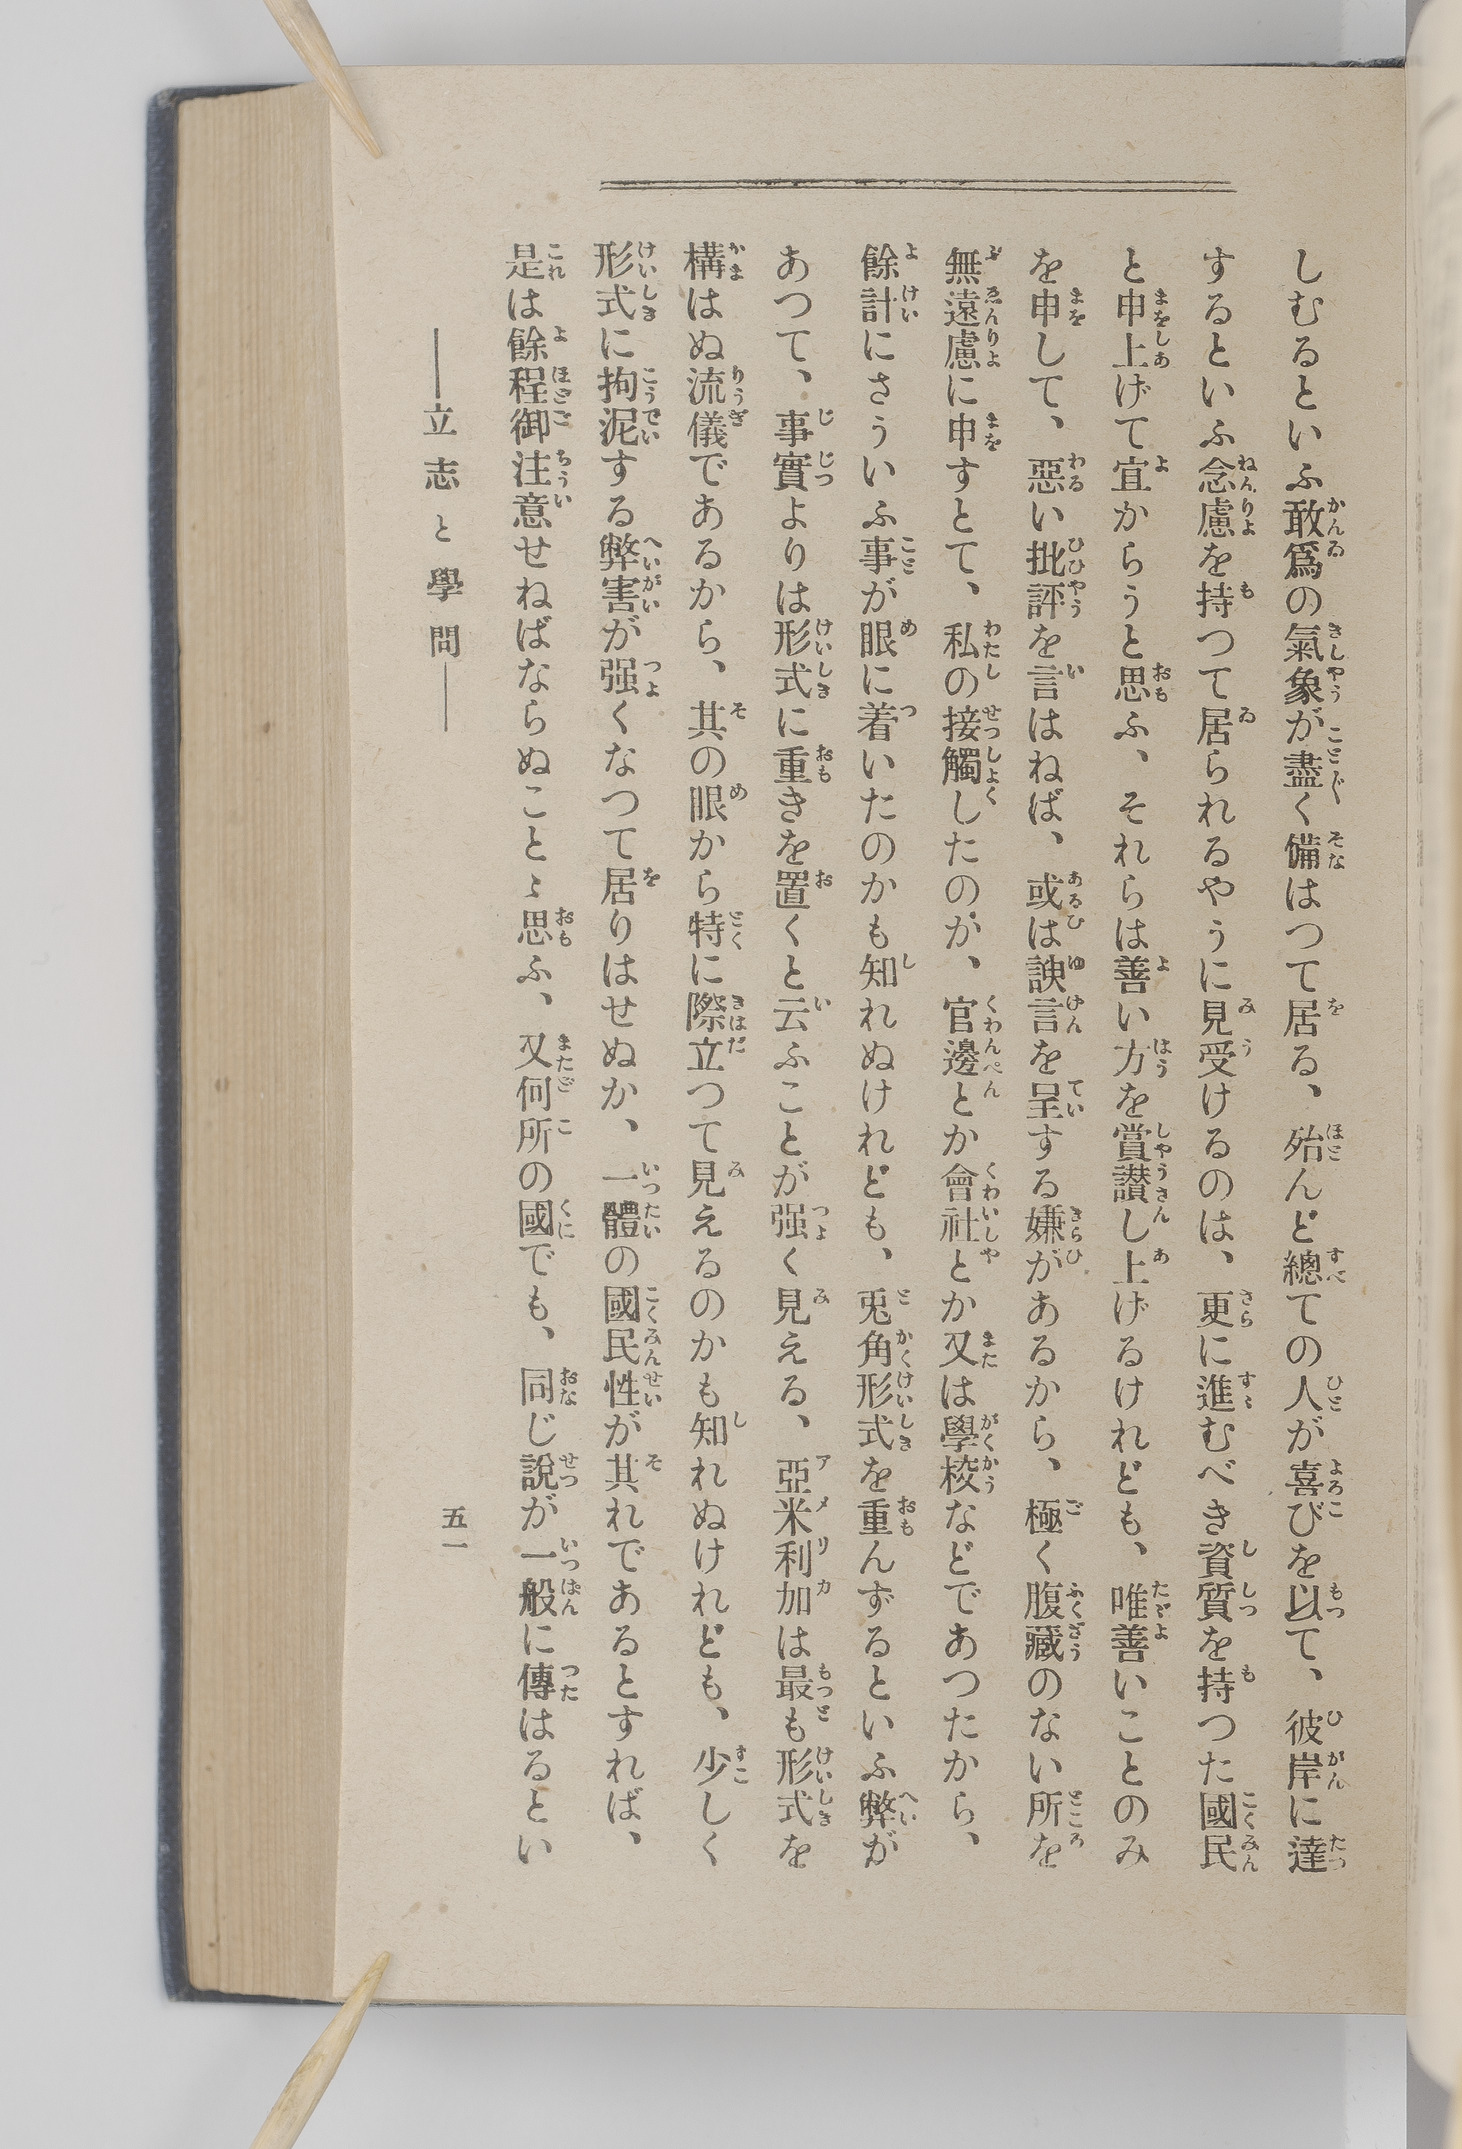 しむるといふ敢爲の氣象が盡く備はつて居る、殆んど總ての人が喜びを以て、彼岸に達
するといふ念慮を持つて居られるやうに見受けるのは、更に進むべき資質を持つた國民
と申上げて宜からうと思ふ、それらは善い方を賞讃し上げるけれども、唯善いことのみ
を申して、惡い批評を言はねば、或は諛言を呈する嫌があるから、極く腹藏のない所を
無遠慮に申すとて、私の接觸したのが、官邊とか會社とか又は學校などであつたから、
餘計にさういふ事が眼に着いたのかも知れぬけれども、兎角形式を重んずるといふ弊が
あつて、事實よりは形式に重きを置くと云ふことが强く見える、亞米利加は最も形式を
構はぬ流儀であるから、其の眼から特に際立つて見えるのかも知れぬけれども、少しく
形式に拘泥する弊害が强くなつて居りはせぬか、一體の國民性が其れであるとすれば、
是は餘程御注意せねばならぬことゝ思ふ、又何所の國でも、同じ說が一般に傳はるとい
――立志と學問――
五一